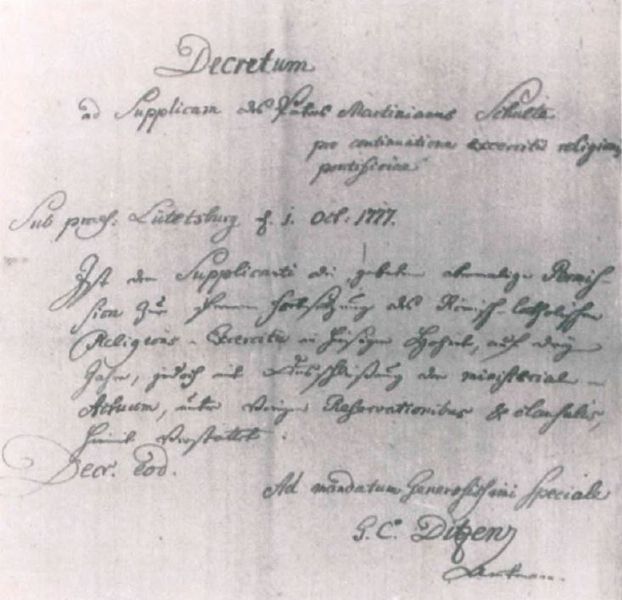 Decretum
ad Supplicam des Patris Martinianus Schulte
pro continuatione exercitii religionis
pontificiae
Sub praes: Lütetsburg d. 1. Oct. 1777.
Ist dem Supplicanti die gebetene abermalige Permis-
sion zur fernern Fortsetzung des Römisch-Catholischen
Religions-Exercitii in hiesiger Herrlichkeit, auf drey
Jahre, jedoch mit Ausschließung der ministerial-
Actuum, unter vorigen Reservationibus & clausulis,
hiemit verstattet.
Decr. eod.
Ad mandatum Generosissimi speciale
G. C. Ditzen